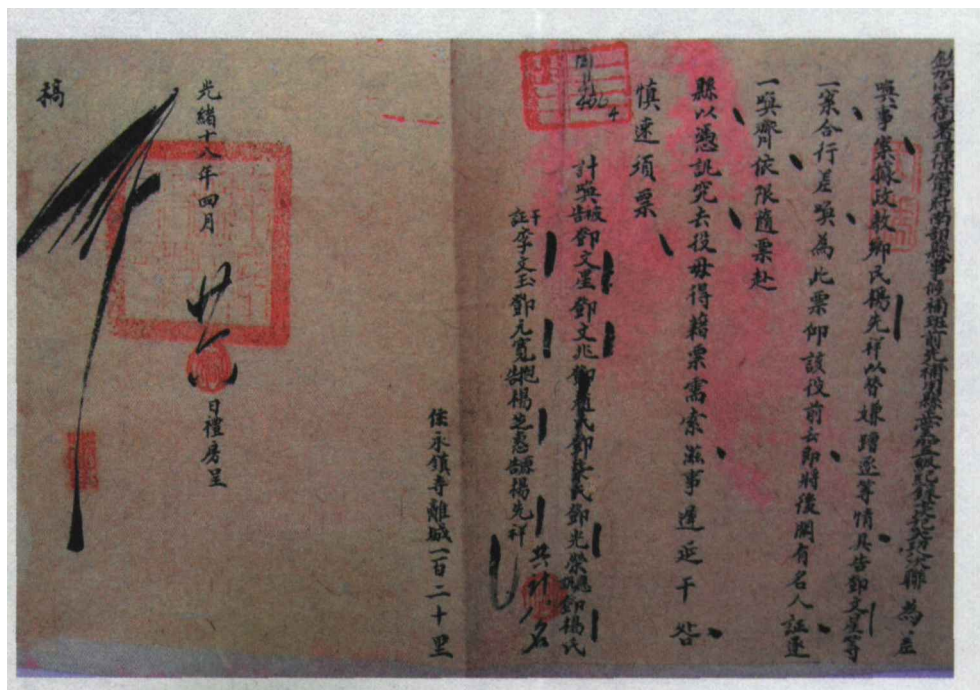 署理保寧府南部縣事候補班前先補用縣 為差
喚事案據政教鄉民楊先祥以脅嫌蹧逐等情具告鄧文星等
一案合行差喚為此票仰該役前去即將後開有名人証逐
一喚齊依限隨票赴
縣以憑訊究去役毋得藉票需索滋事遲延干咎
慎速須票
計喚被告鄧文星鄧文兆鄧趙氏鄧蔡氏鄧光榮鄧楊氏
干証李文玉鄧元寬抱告楊芝惠原告楊先祥
共計 名
住永鎮寺離城一百二十里
光緒十八年四月 日禮房呈
稿
行